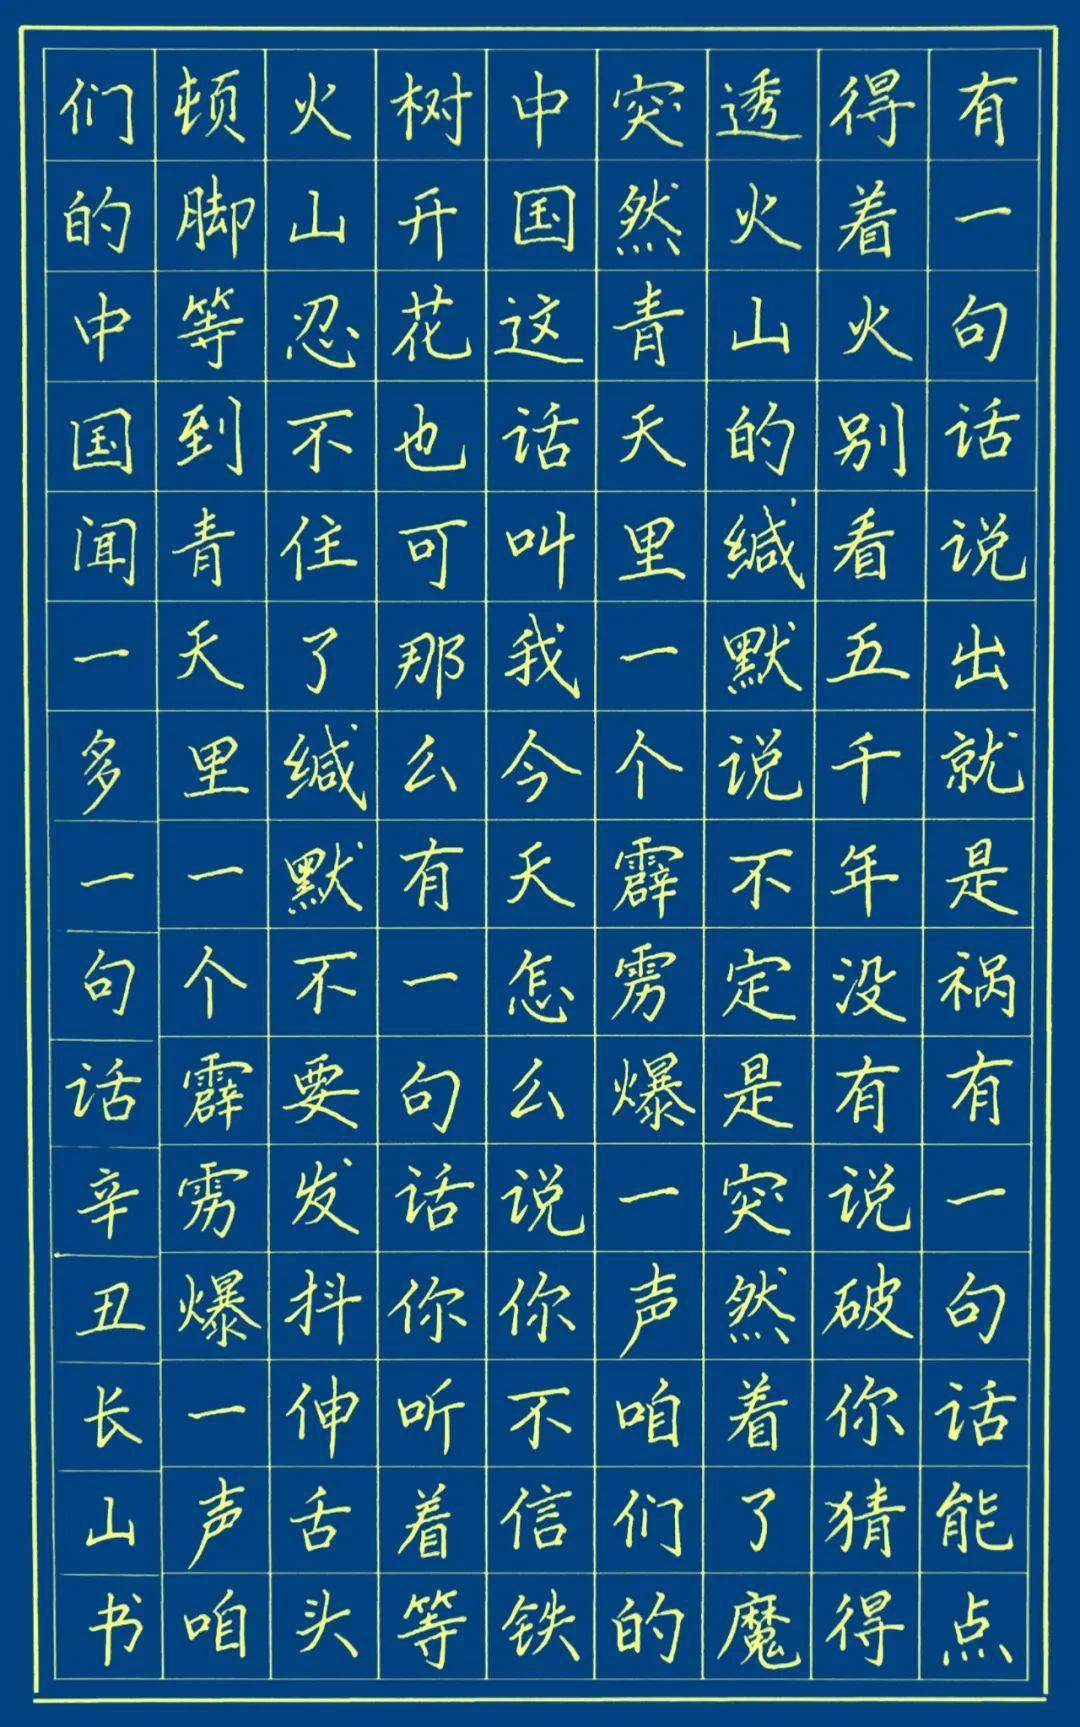 有一句话说出就是祸有一句话能点
得着火别看五千年没有说破你猜得
透火山的缄默说不定是突然着了魔
突然青天里一个霹雳爆一声咱们的
中国这话叫我今天怎么说你不信铁
树开花也可那么有一句话你听着等
火山忍不住了缄默不要发抖伸舌头
顿脚等到青天里一个霹雳爆一声咱
们的中国闻一多一句话辛丑长山书